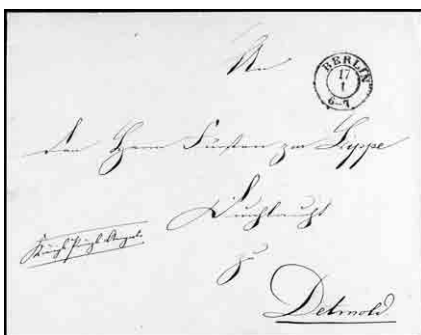 An
BERLIN
17
1
6-7
den Herrn Fürsten zur Lippe
Durchlaucht
zu
Detmold